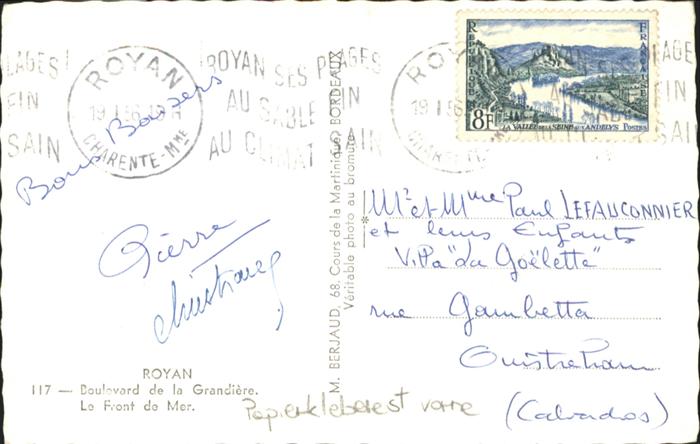 ROYAN
19-1-56
CHARENTE-Mme
ROYAN SES PLAGES
AU SABLE FIN
AU CLIMAT SAIN
RÉPUBLIQUE
FRANÇAISE
8F
LA VALLÉE DE LA SEINE AUX ANDELYS POSTES
Bons Baisers
Pierre
M. BERJAUD, 68, Cours de la Martinique, BORDEAUX
Véritable photo au bromure
Mr et Mme Paul LEFAUCONNIER
et leurs Enfants
Villa "La Goëlette"
rue Gambetta
Ouistreham
(Calvados)
ROYAN
117 — Boulevard de la Grandière.
Le Front de Mer.
Papierkleberest vorne